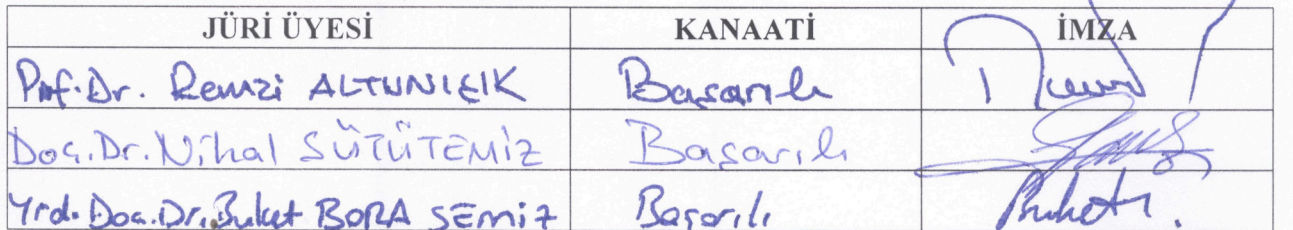 JÜRİ ÜYESİ KANAATİ İMZA
Prof. Dr. Remzi ALTUNIŞIK Başarılı
Doç. Dr. Nihal SÜTÜTEMİZ Başarılı
Yrd. Doç. Dr. Buket BORA SEMİZ Başarılı Buket